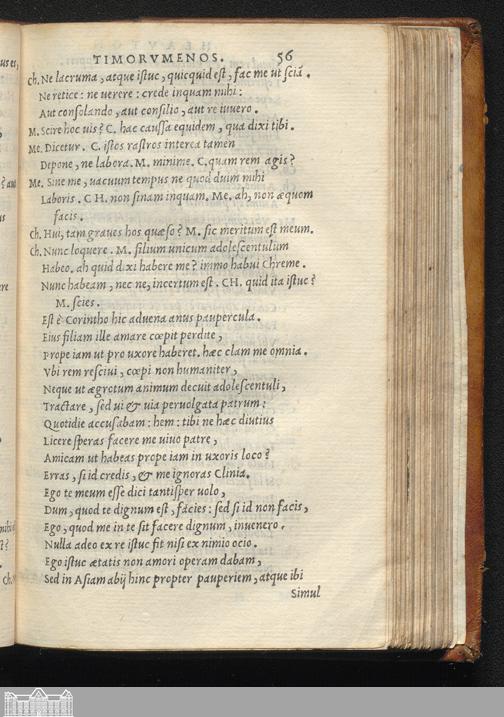 TIMORVMENOS. 56
Ch. Ne lacruma, atque istuc, quicquid est, fac me ut sciā.
Ne retice: ne uerere: crede inquam mihi:
Aut consolando, aut consilio, aut re iuuero.
M. Scire hoc uis? C. hac caussa equidem, qua dixi tibi.
Me. Dicetur. C. istos rastros interea tamen
Depone, ne labora. M. minime. C. quam rem agis?
Me. Sine me, uacuum tempus ne quod duim mihi
Laboris. CH. non sinam inquam. Me. ah, non æquom
facis.
Ch. Hui, tam graues hos quæso? M. sic meritum est meum.
Ch. Nunc loquere. M. filium unicum adolescentulum
Habeo. ah quid dixi habere me? immo habui Chreme.
Nunc habeam, nec ne, incertum est. CH. quid ita istuc?
M. scies.
Est è Corintho hic aduena anus paupercula.
Eius filiam ille amare cœpit perdite,
Prope iam ut pro uxore haberet. hæc clam me omnia.
Vbi rem resciui, cœpi non humaniter,
Neque ut ægrotum animum decuit adolescentuli,
Tractare, sed ui & uia peruolgata patrum:
Quotidie accusabam: hem: tibi ne hæc diutius
Licere speras facere me uiuo patre,
Amicam ut habeas prope iam in uxoris loco?
Erras, si id credis, & me ignoras Clinia.
Ego te meum esse dici tantisper uolo,
Dum, quod te dignum est, facies: sed si id non facis,
Ego, quod me in te sit facere dignum, inuenero.
Nulla adeo ex re istuc fit nisi ex nimio ocio.
Ego istuc ætatis non amori operam dabam,
Sed in Asiam abij hinc propter pauperiem, atque ibi
Simul